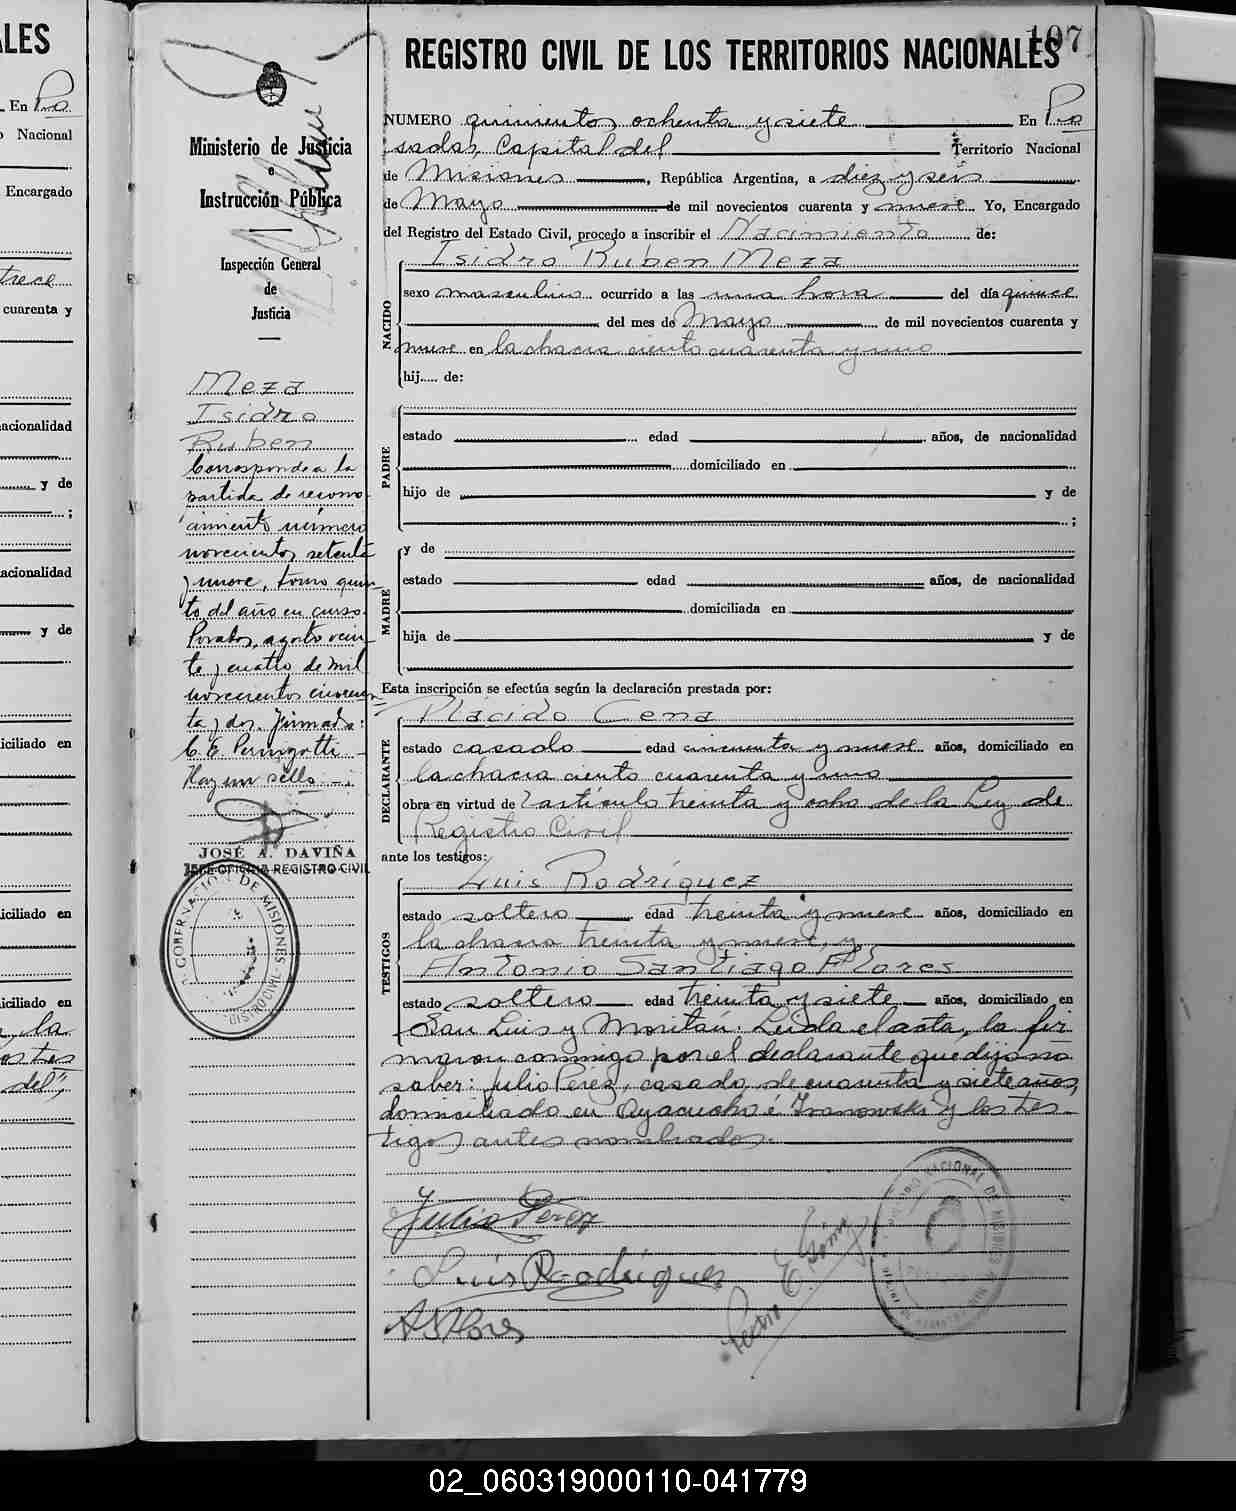 ALES
En Po
Nacional
Encargado
trece
cuarenta y
acionalidad
y de
;
acionalidad
y de
iciliado en
iciliado en
iciliado en
la
del
107
REGISTRO CIVIL DE LOS TERRITORIOS NACIONALES
Ministerio de Justicia
e
Instrucción Pública
Inspección General
de
Justicia
Meza
Isidro
Ruben
Corresponde a la
partida de recono-
cimiento número
novecientos setenta
y nueve, tomo quin-
to del año en curso.
Posadas, agosto vein-
te y cuatro de mil
novecientos cincuen-
ta y dos. Firmado:
C. E. Peringotti
Hay un sello
JOSÉ A. DAVIÑA
JEFE OFICINA REGISTRO CIVIL
GOBERNACION DE MISIONES
NUMERO quinientos ochenta y siete En Po
sadas, Capital del Territorio Nacional
de Misiones, República Argentina, a diez y seis
de Mayo de mil novecientos cuarenta y nueve. Yo, Encargado
del Registro del Estado Civil, procedo a inscribir el Nacimiento de:
NACIDO
Isidro Ruben Meza
sexo masculino ocurrido a las una hora del día quince
del mes de Mayo de mil novecientos cuarenta y
nueve en la chacra ciento cuarenta y uno
hij..... de:
PADRE
estado edad años, de nacionalidad
domiciliado en
hijo de y de
;
MADRE
y de
estado edad años, de nacionalidad
domiciliada en
hija de y de
Esta inscripción se efectúa según la declaración prestada por:
DECLARANTE
Plácido Cena
estado casado edad cincuenta y nueve años, domiciliado en
la chacra ciento cuarenta y uno
obra en virtud de l artículo treinta y ocho de la Ley de
Registro Civil
ante los testigos:
TESTIGOS
Luis Rodríguez
estado soltero edad treinta y nueve años, domiciliado en
la chacra treinta y nueve, y
Antonio Santiago Flores
estado soltero edad treinta y siete años, domiciliado en
San Luis y Moritán. Leída el acta, la fir
maron conmigo por el declarante que dijo no
saber: Julio Pérez, casado, de cuarenta y siete años,
domiciliado en Ayacucho é Ivanowski y los tes-
tigos antes nombrados.
Julio Perez
Luis Rodríguez
A S Flores
Pedro E.
NACIONAL DE MISIONES
02_060319000110-041779